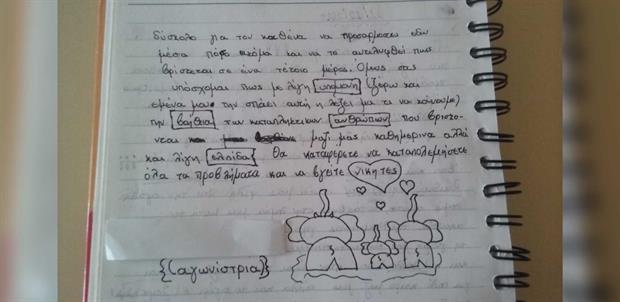 δύσκολο για τον καθένα να προσαρμοσει εδω
μέσα πόσο ακόμα και να το αντιληφθεί πως
βρίσκεται σε ένα τέτοιο μέρος. Όμως σας
υπόσχομαι πως με λίγη υπομονή (ξέρω και
εμένα μου την σπάει αυτή η λέξει μα τι να κάνουμε)
την βοήθεια των καταπληκτικων ανθρώπων που βρισκο-
νται μαζί μας καθημερινα αλλά
και λίγη ελπίδα θα καταφέρετε να καταπολεμήσετε
όλα τα προβλήματα και να βγείτε νικητες
{(αγωνίστρια)}